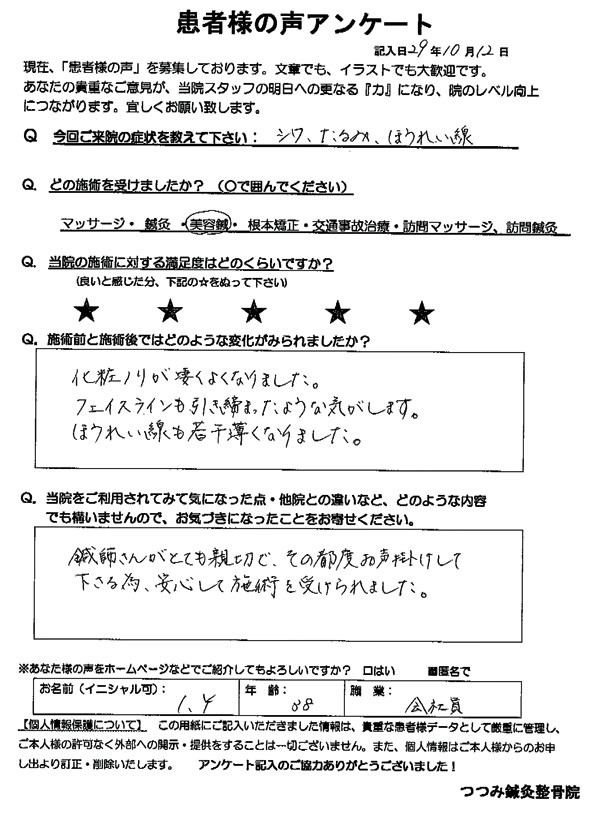 患者様の声アンケート
記入日29年10月12日
現在、「患者様の声」を募集しております。文章でも、イラストでも大歓迎です。
あなたの貴重なご意見が、当院スタッフの明日への更なる『力』になり、院のレベル向上
につながります。宜しくお願い致します。
Q 今回ご来院の症状を教えて下さい： シワ、たるみ、ほうれい線
Q. どの施術を受けましたか？（〇で囲んでください）
マッサージ・ 鍼灸 ・美容鍼・ 根本矯正・交通事故治療・訪問マッサージ、訪問鍼灸
Q. 当院の施術に対する満足度はどのくらいですか？
（良いと感じた分、下記の☆をぬって下さい）
★ ★ ★ ★ ★
Q. 施術前と施術後ではどのような変化がみられましたか？
化粧ノリが凄くよくなりました。
フェイスラインも引き締まったような気がします。
ほうれい線も若干薄くなりました。
Q. 当院をご利用されてみて気になった点・他院との違いなど、どのような内容
でも構いませんので、お気づきになったことをお寄せください。
鍼師さんがとても親切で、その都度お声掛けして
下さる為、安心して施術を受けられました。
※あなた様の声をホームページなどでご紹介してもよろしいですか？ □はい ■匿名で
お名前（イニシャル可）： 年 齢： 38 職 業： 会社員
【個人情報保護について】 この用紙にご記入いただきました情報は、貴重な患者様データとして厳重に管理し、
ご本人様の許可なく外部への開示・提供をすることは一切ございません。また、個人情報はご本人様からのお申
し出より訂正・削除いたします。 アンケート記入のご協力ありがとうございました！
つつみ鍼灸整骨院